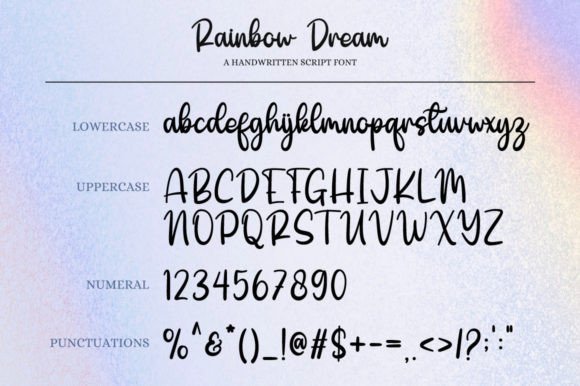 Rainbow Dream
A HANDWRITTEN SCRIPT FONT
LOWERCASE abcdefghijklmnopqrstuvwxyz
UPPERCASE ABCDEFGHIJKLM
NOPQRSTUVWXYZ
NUMERAL 1234567890
PUNCTUATIONS %^&*()_!@#$+-=,.<>/?;':"